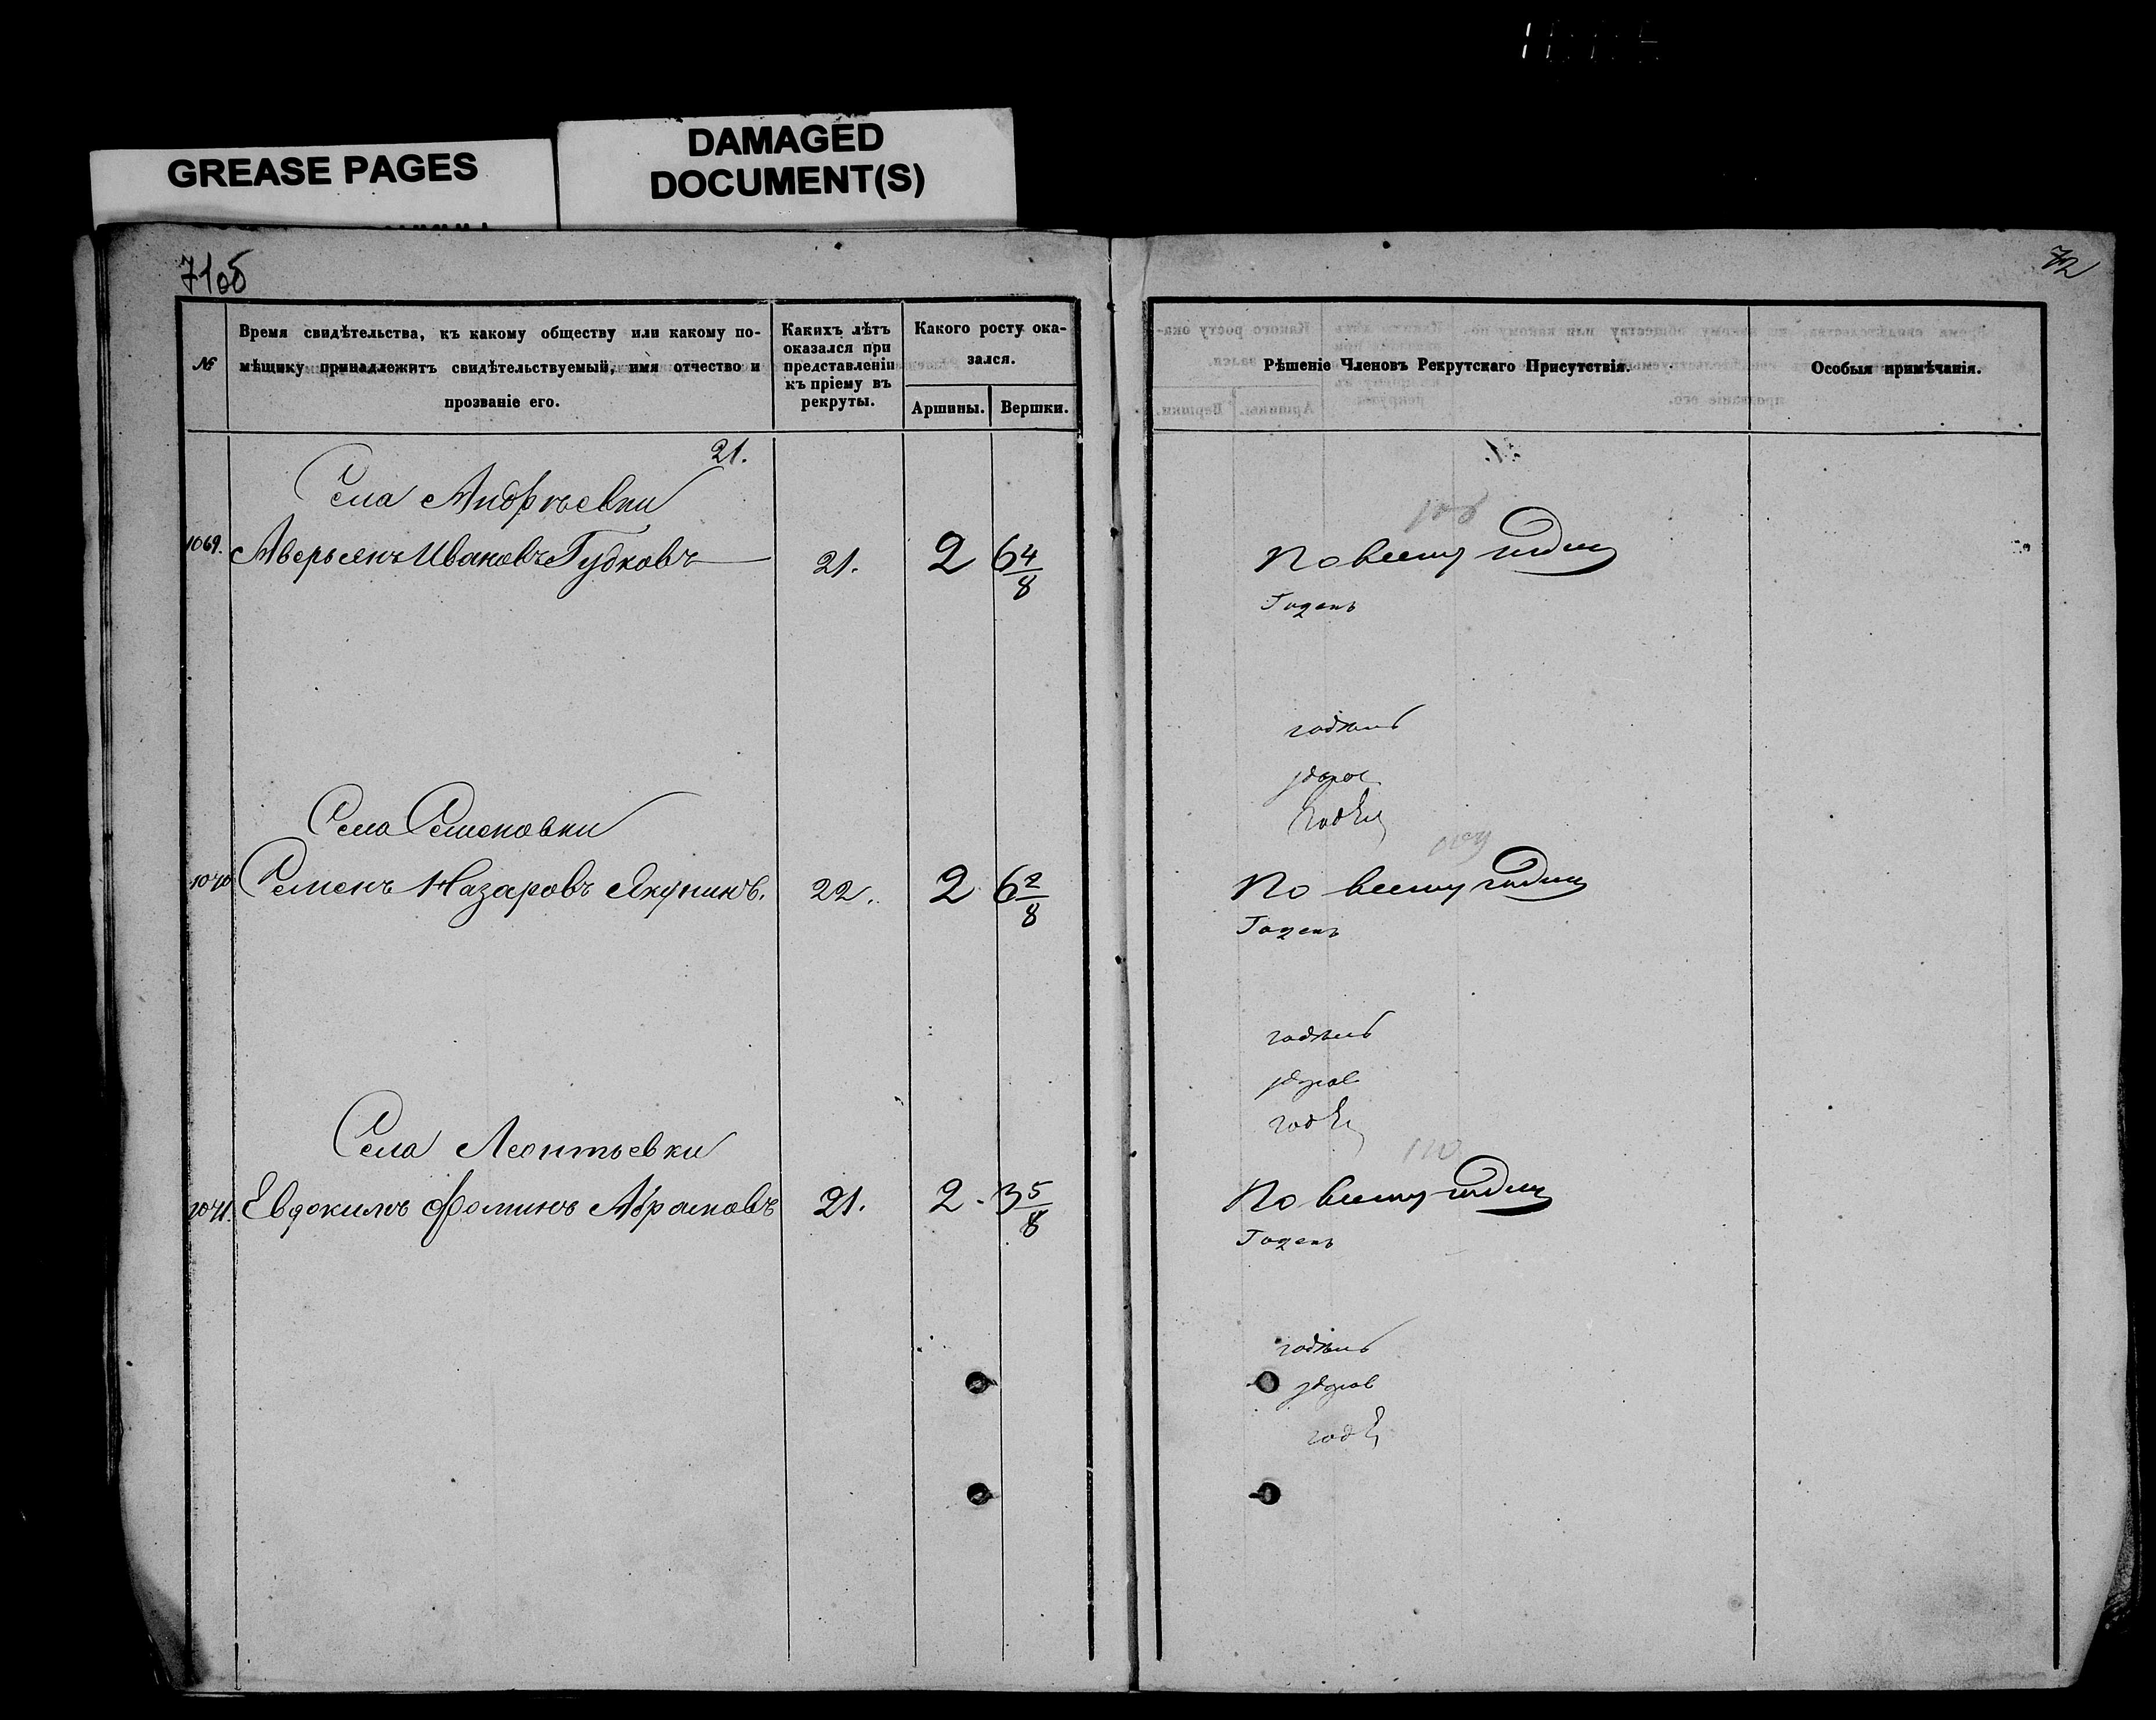 GREASE PAGES
DAMAGED
DOCUMENT(S)
71об
72
№
Время свидѣтельства, къ какому обществу или какому по-
мѣщику принадлежитъ свидѣтельствуемый, имя отчество и
прозваніе его.
Какихъ лѣтъ
оказался при
представленіи
къ пріему въ
рекруты.
Какого росту ока-
зался.
Аршины.
Вершки.
Рѣшеніе Членовъ Рекрутскаго Присутствія.
Особыя примѣчанія.
21.
Села Андрѣевки
1069. Аверьянъ Ивановъ Гудковъ 21. 2 6 4/8
По всему годенъ
Годенъ
годенъ
здоров
годен
Села Семеновки
1070 Семенъ Назаровъ Якунинъ. 22. 2 6 2/8
По всему годенъ
Годенъ
годенъ
здоров
годен
Села Леонтьевки
1071. Евдокимъ Фоминъ Абрамовъ 21. 2 3 5/8
По всему годенъ
Годенъ
годенъ
здоров
годен